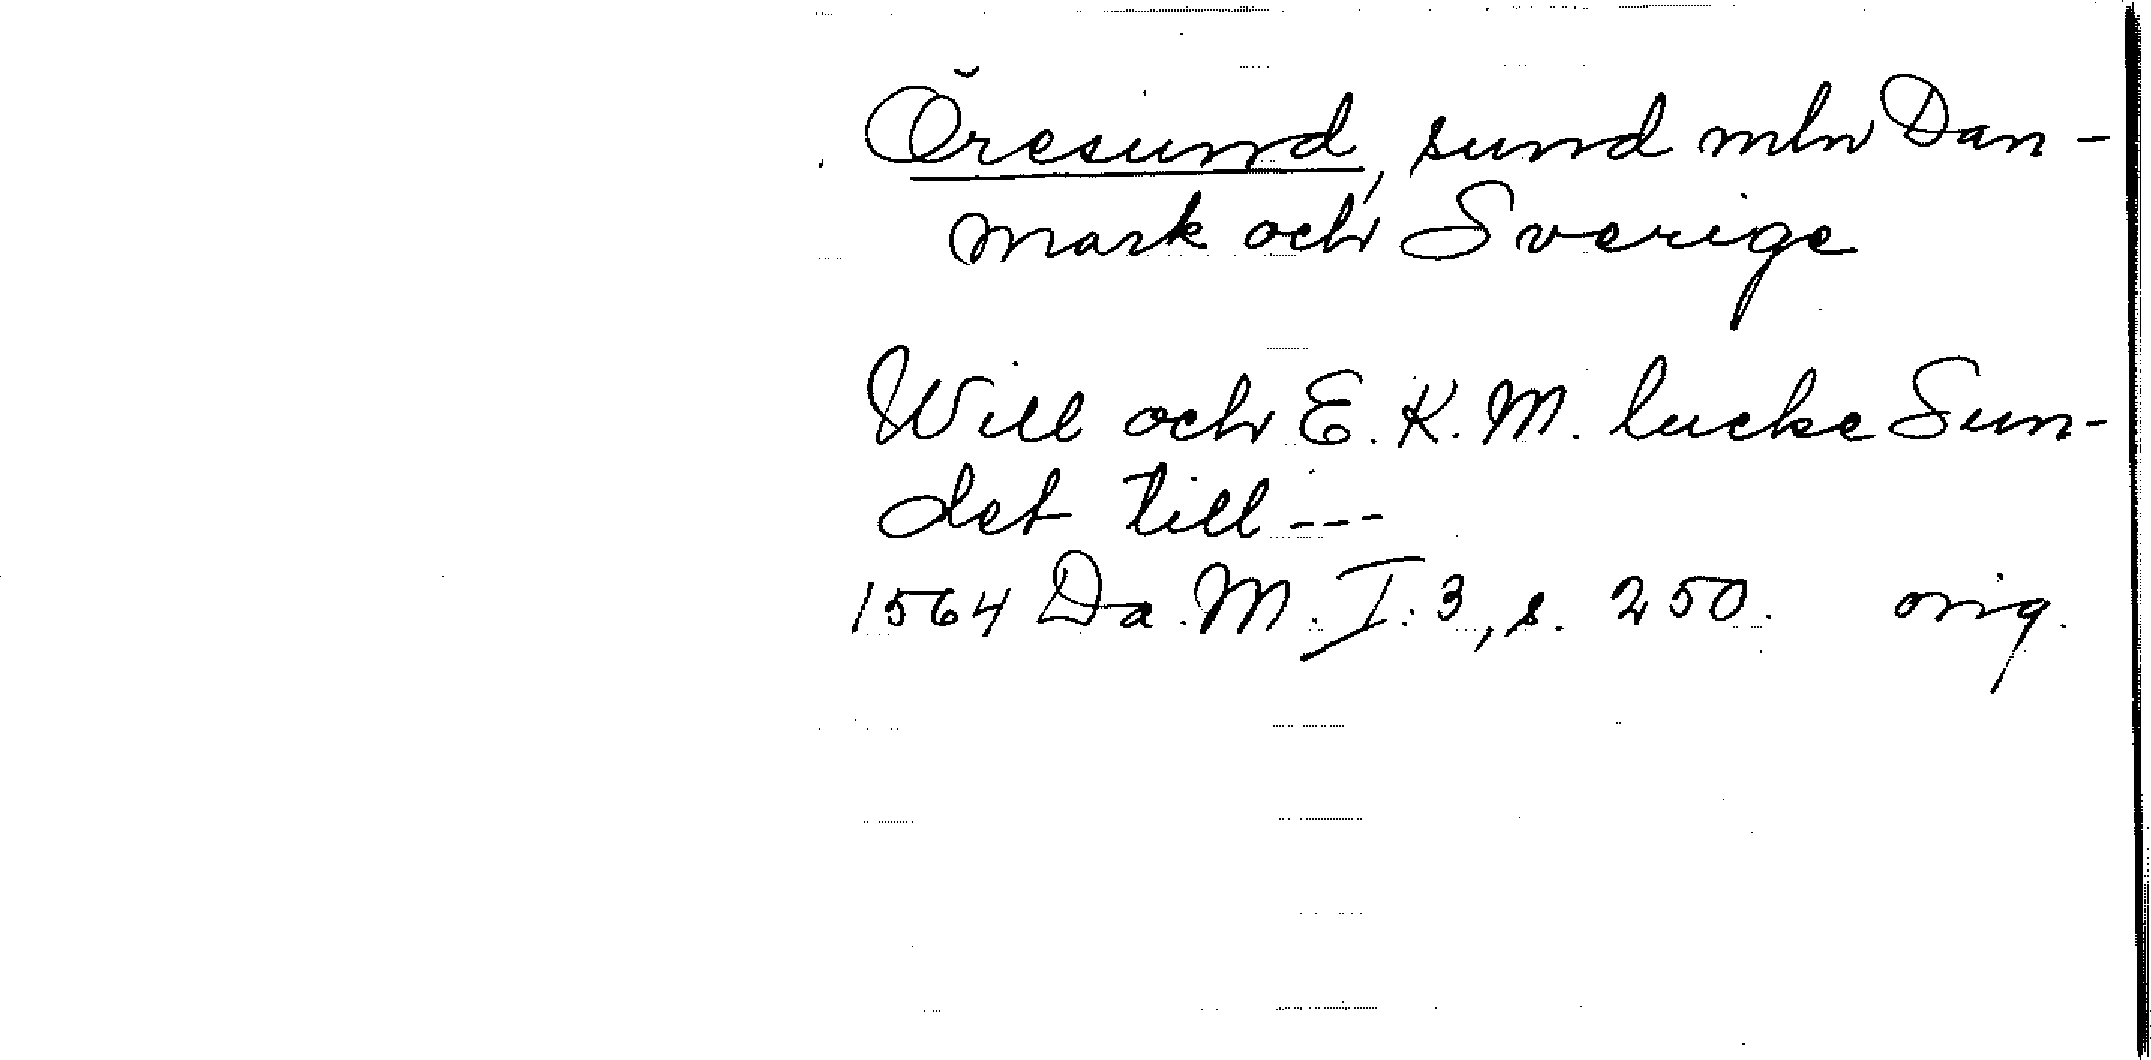 Öresund, sund mln Dan-
mark och Sverige
Will och E. K. M. lucke Sun-
det till ---
1564 Da. M. I: 3, s. 250. orig.